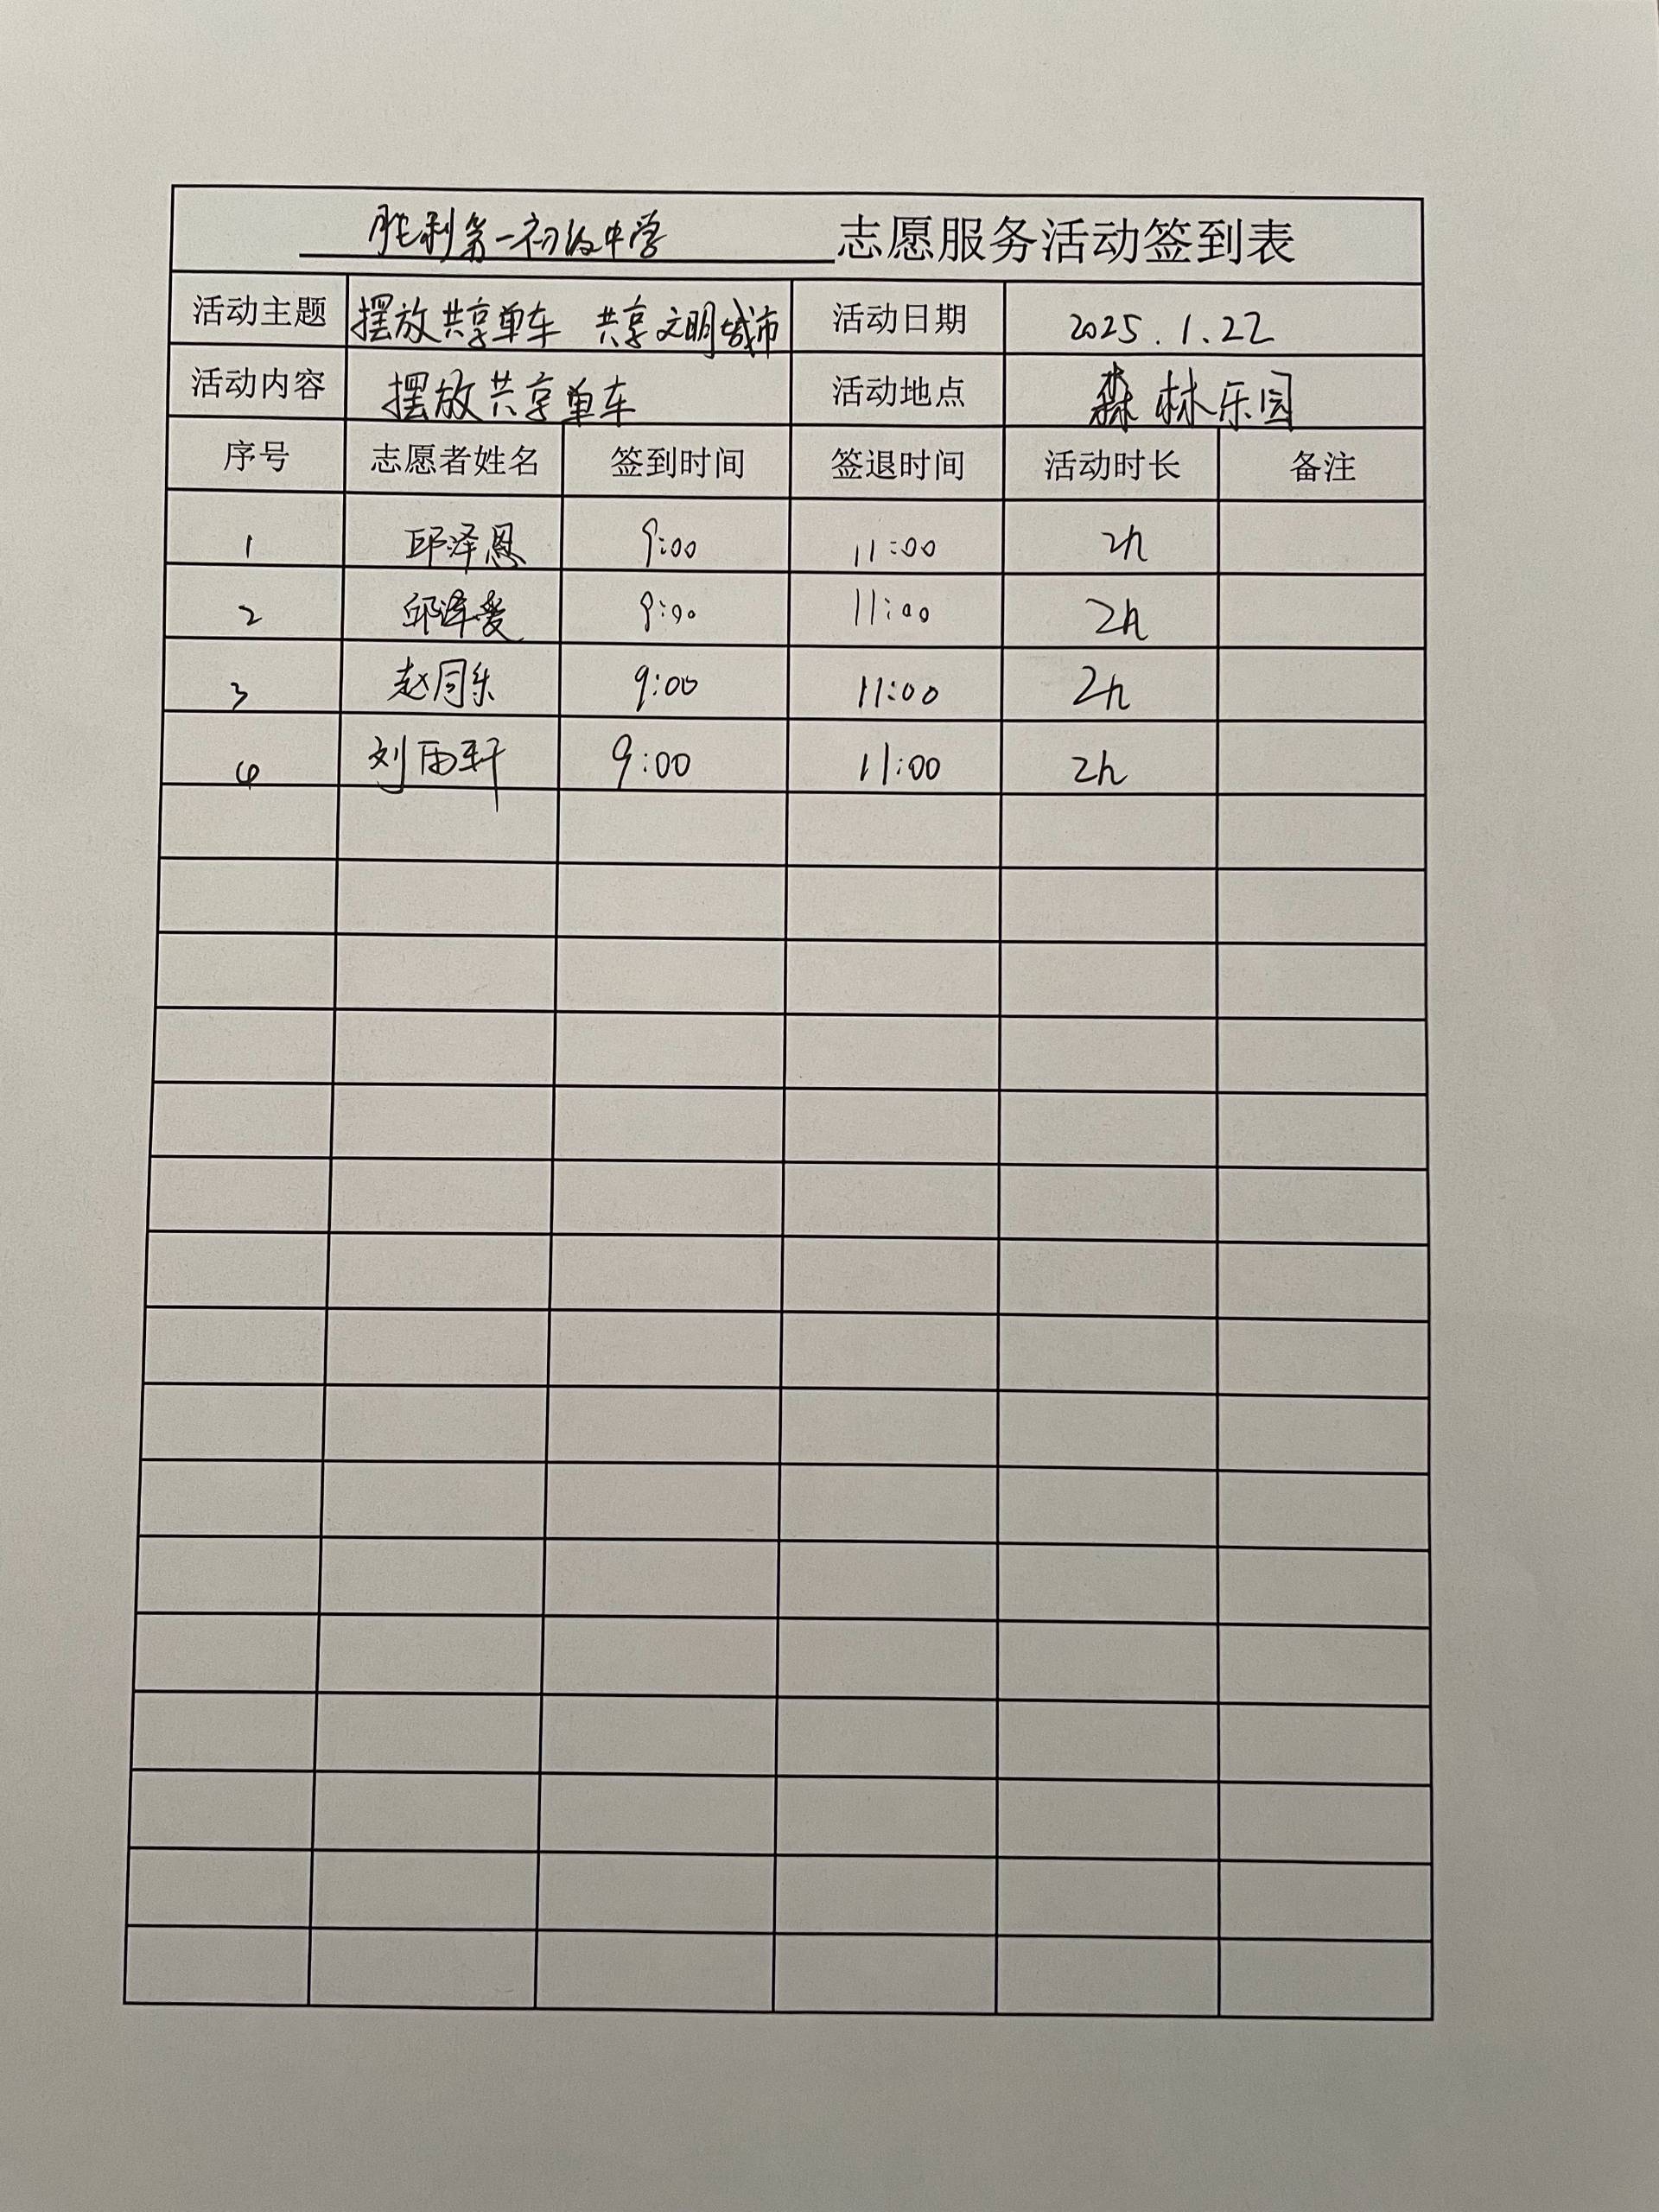 胜利第一初级中学 志愿服务活动签到表
活动主题 摆放共享单车 共享文明城市 活动日期 2025.1.22
活动内容 摆放共享单车 活动地点 森林乐园
序号 志愿者姓名 签到时间 签退时间 活动时长 备注
1 邱泽恩 9:00 11:00 2h
2 邱泽爱 9:00 11:00 2h
3 赵同乐 9:00 11:00 2h
4 刘雨轩 9:00 11:00 2h